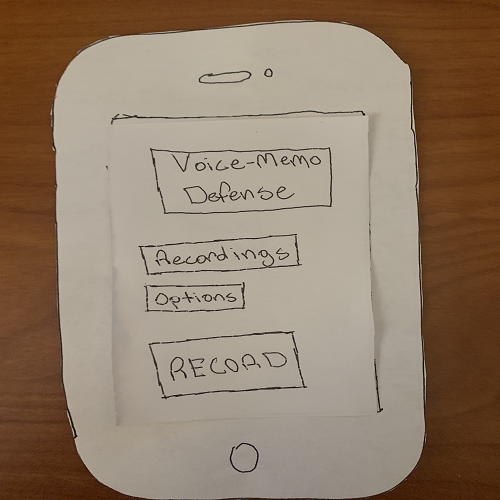 Voice-Memo
Defense
Recordings
Options
RECORD